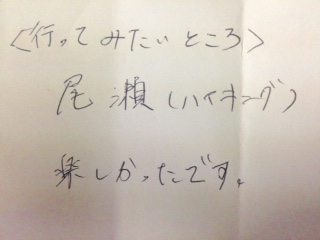 <行ってみたいところ>
尾瀬(ハイキング)
楽しかったです。